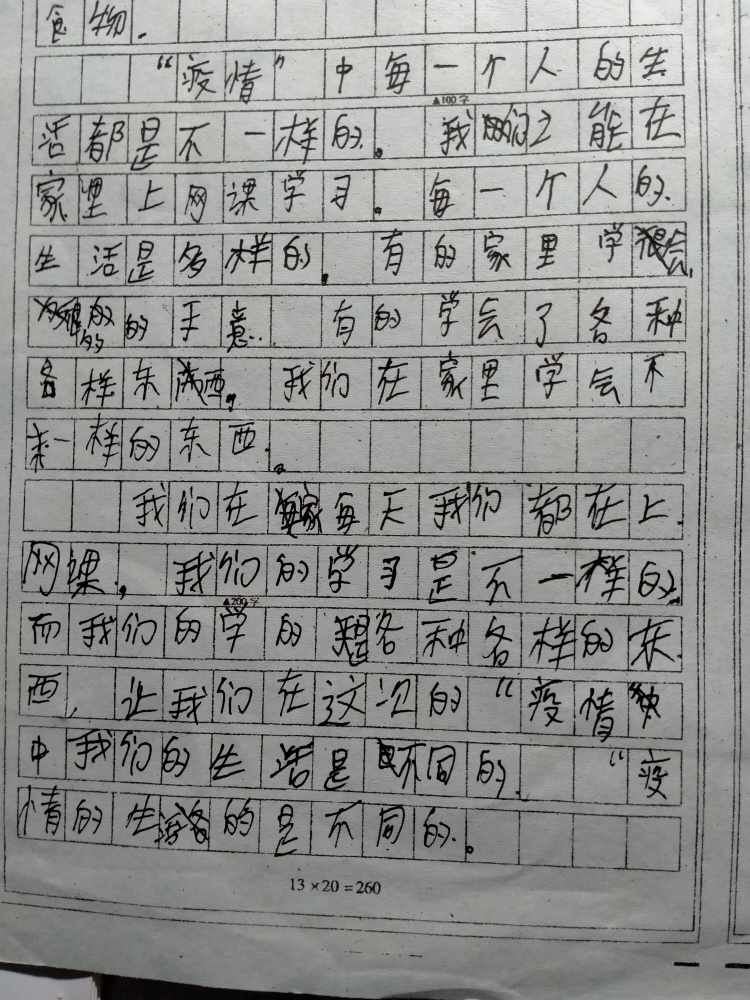 食物.
“疫情”中每一个人的生
▲100字
活都是不一样的。我们之能在
家里上网课学习。每一个人的
生活是多样的。有的家里学会,
的手意.有的学会了各种
各样东西。我们在家里学会不
一样的东西.。
我们在家每天我们都在上.
网课,我们的学习是不一样的.
▲200字
而我们的学的是各种各样的东.
西,让我们在这次的“疫情”
中我们的生活是不同的.“疫
情的生活的是不同的.。
13×20=260